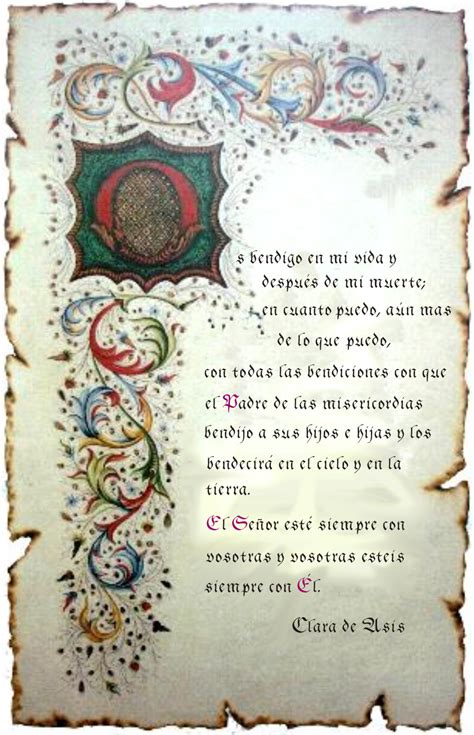 Os bendigo en mi vida y
después de mi muerte;
en cuanto puedo, aún mas
de lo que puedo,
con todas las bendiciones con que
el Padre de las misericordias
bendijo a sus hijos e hijas y los
bendecirá en el cielo y en la
tierra.
El Señor esté siempre con
vosotras y vosotras esteis
siempre con Él.
Clara de Asis